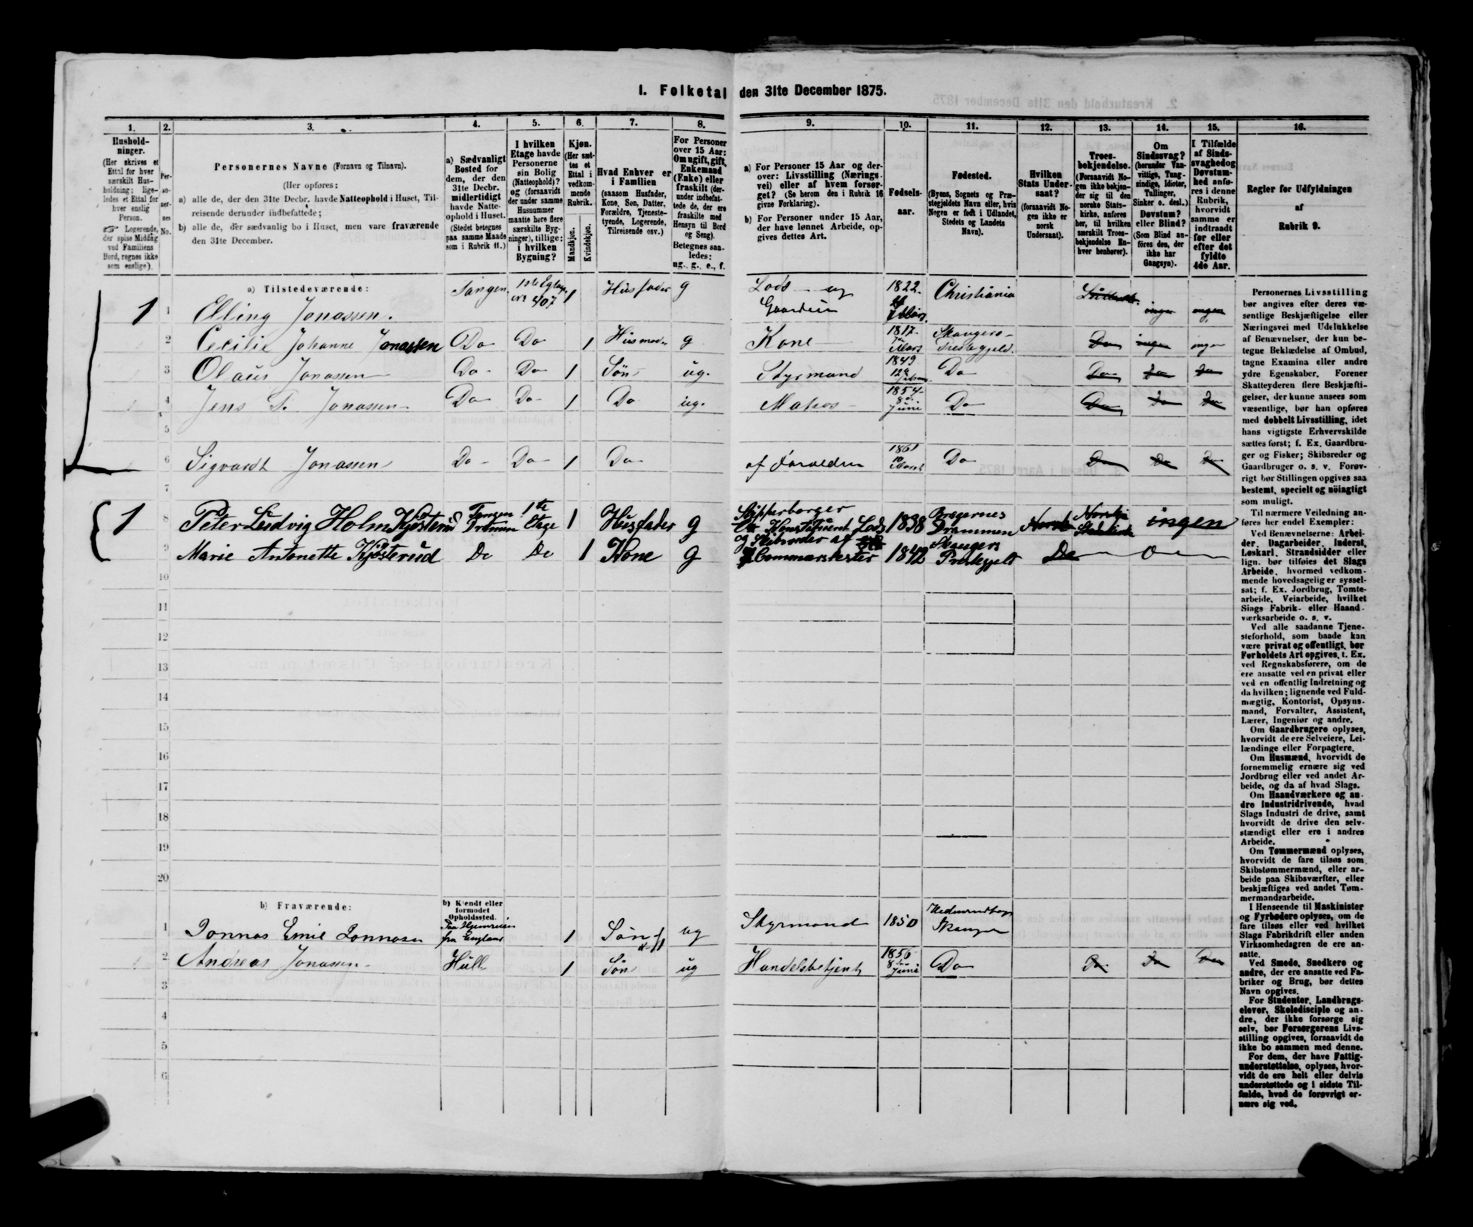 1. Folketal den 31te December 1875.
1.
Hushold-
ninger.
(Her skrives et
Ettal for hver
særskilt Hus-
holdning; lige-
ledes et Ettal for
hver enslig
Person.
☞ Logerende,
der spise Middag
ved Familiens
Bord, regnes ikke
som enslige).
2.
Per-
so-
ner-
nes
No.
3.
Personernes Navne (Fornavn og Tilnavn).
(Her opføres:
a) alle de, der den 31te Decbr. havde Natteophold i Huset, Til-
reisende derunder indbefattede;
b) alle de, der sædvanlig bo i Huset, men vare fraværende
den 31te December.
4.
a) Sædvanligt
Bosted for
dem, der den
31te Decbr.
midlertidigt
havde Natte-
ophold i Huset.
(Stedet betegnes
paa samme Maade
som i Rubrik 11.)
5.
I hvilken
Etage havde
Personerne
sin Bolig
(Natteophold)?
og (forsaavidt
der under samme
Husnummer
maatte høre flere
særskilte Byg-
ninger), tillige:
i hvilken
Bygning?
6.
Kjøn.
(Her sæt-
tes et
Ettal i
vedkom-
mende
Rubrik.
Mandkjøn.
Kvindekjøn.
7.
Hvad Enhver er
i Familien
(saasom Husfader,
Kone, Søn, Datter,
Forældre, Tjeneste-
tyende, Logerende,
Tilreisende osv.).
8.
For Personer
over 15 Aar:
Om ugift, gift,
Enkemand
(Enke) eller
fraskilt (der-
under indbefat-
tede de, der ere
fraskilte med
Hensyn til Bord
og Seng).
Betegnes saa-
ledes:
ug., g., e., f.
9.
a) For Personer 15 Aar og der-
over: Livsstilling (Nærings-
vei) eller af hvem forsør-
get? (Se herom den i Rubrik 16
givne Forklaring).
b) For Personer under 15 Aar,
der have lønnet Arbeide, op-
gives dettes Art.
10.
Fødsels-
aar.
11.
Fødested.
(Byens, Sognets og Præ-
stegjeldets Navn eller, hvis
Nogen er født i Udlandet,
Stedets og Landets
Navn).
12.
Hvilken
Stats Under-
saat?
(forsaavidt No-
gen ikke er
norsk
Undersaat).
13.
Troes-
bekjendelse.
(Forsaavidt No-
gen ikke bekjen-
der sig til den
norske Stats-
kirke, anføres
her, til hvilken
særskilt Troes-
bekjendelse En-
hver henhører).
14.
Om
Sindssvag?
(herunder Van-
vittige, Tung-
sindige, Idioter,
Tullinger,
Sinker o. desl.)
Døvstum?
eller Blind?
(Som Blind an-
føres den, der
ikke har
Gangsyn).
15.
I Tilfælde
af Sinds-
svaghed og
Døvstum-
hed anfø-
res i denne
Rubrik,
hvorvidt
samme er
indtraadt
før eller
efter det
fyldte
4de Aar.
16.
Regler for Udfyldningen
af
Rubrik 9.
a) Tilstedeværende:
1 1 Elling Jonassen. Tangen 407 1 Husfader g Lods og Gaardeier 1822 Christiania ingen ingen
2 Cecilie Johanne Jonassen Do Do 1 Husmoder g Kone 1817 Mars Skangers Præstegjeld. Do ingen ingen
3 Olaus Jonassen Do Do 1 Søn ug. Styrmand 1849 Do Do Do Do
4 Jens Jonassen Do Do 1 Do ug. Matros 1854 8de Juni Do Do Do Do
5
6 Sigvardt Jonassen Do Do 1 Do af Forældre 1861 Do Do Do Do
7
1 8 Peter Ludvig Holm Kjøsterud Tangen Drammen 1te Etage 1 Husfader g Skipperborger 1838 Bragernes Drammen Norsk Norske Statskirke ingen
9 Marie Antonette Kjøsterud Do Do 1 Kone g 1842 Skangers Præstegjeld Do
10
11
12
13
14
15
16
17
18
19
20
b) Fraværende:
b) Kjendt eller
formodet
Opholdssted.
1 Jonnas Emil Jonnasen Paa Hjemreise fra England 1 Søn ug Styrmand 1850 Skanger
2 Andreas Jonassen Hull 1 Søn ug Handelsbetjent 1856 8de Juni Do Do Do
3
4
5
6
Personernes Livsstilling
bør angives efter deres væ-
sentlige Beskjæftigelse eller
Næringsvei med Udelukkelse
af Benævnelser, der kun be-
tegne Beklædelse af Ombud,
tagne Examina eller andre
ydre Egenskaber. Forener
Skatteyderen flere Beskjæfti-
gelser, der kunne ansees som
væsentlige, bør han opføres
med dobbelt Livsstilling, idet
hans vigtigste Erhvervskilde
sættes først; f. Ex. Gaardbru-
ger og Fisker; Skibsreder og
Gaardbruger o. s. v. Forøv-
rigt bør Stillingen opgives saa
bestemt, specielt og nøiagtigt
som muligt.
Til nærmere Veiledning an-
føres her endel Exempler:
Ved Benævnelserne: Arbei-
der, Dagarbeider, Inderst,
Løskarl, Strandsidder eller
lign. bør tilføies det Slags
Arbeide, hvormed vedkom-
mende hovedsagelig er syssel-
sat; f. Ex. Jordbrug, Tomte-
arbeide, Veiarbeide, hvilket
Slags Fabrik- eller Haand-
værksarbeide o. s. v.
Ved alle saadanne Tjene-
steforhold, som baade kan
være privat og offentligt, bør
Forholdets Art opgives, f. Ex.
ved Regnskabsførere, om de
ere ansatte ved en privat eller
ved en offentlig Indretning og
da hvilken; lignende ved Fuld-
mægtig, Kontorist, Opsyns-
mand, Forvalter, Assistent,
Lærer, Ingeniør og andre.
Om Gaardbrugere oplyses,
hvorvidt de ere Selveiere, Lei-
lændinge eller Forpagtere.
Om Husmænd, hvorvidt de
fornemmelig ernære sig ved
Jordbrug eller ved andet Ar-
beide, og da af hvad Slags.
Om Haandværkere og an-
dre Industridrivende, hvad
Slags Industri de drive, samt
hvorvidt de drive den selv-
stændigt eller ere i andres
Arbeide.
Om Tømmermænd oplyses,
hvorvidt de fare tilsøs som
Skibstømmermænd, eller ar-
beide paa Skibsværfter, eller
beskjæftiges ved andet Tøm-
mermandarbeide.
I Henseende til Maskinister
og Fyrbødere oplyses, om de
fare tilsøs eller ved hvilket
Slags Fabrikdrift eller anden
Virksomhedsgren de ere an-
satte.
Ved Smede, Snedkere og
andre, der ere ansatte ved Fa-
briker og Brug, bør dettes
Navn opgives.
For Studenter, Landbrugs-
elever, Skoledisciple og an-
dre, der ikke forsørge sig
selv, bør Forsørgerens Livs-
stilling opgives, forsaavidt de
ikke bo sammen med denne.
For dem, der have Fattig-
understøttelse, oplyses, hvor-
vidt de ere helt eller delvis
understøttede og i sidste Til-
fælde, hvad de forøvrigt er-
nære sig ved.